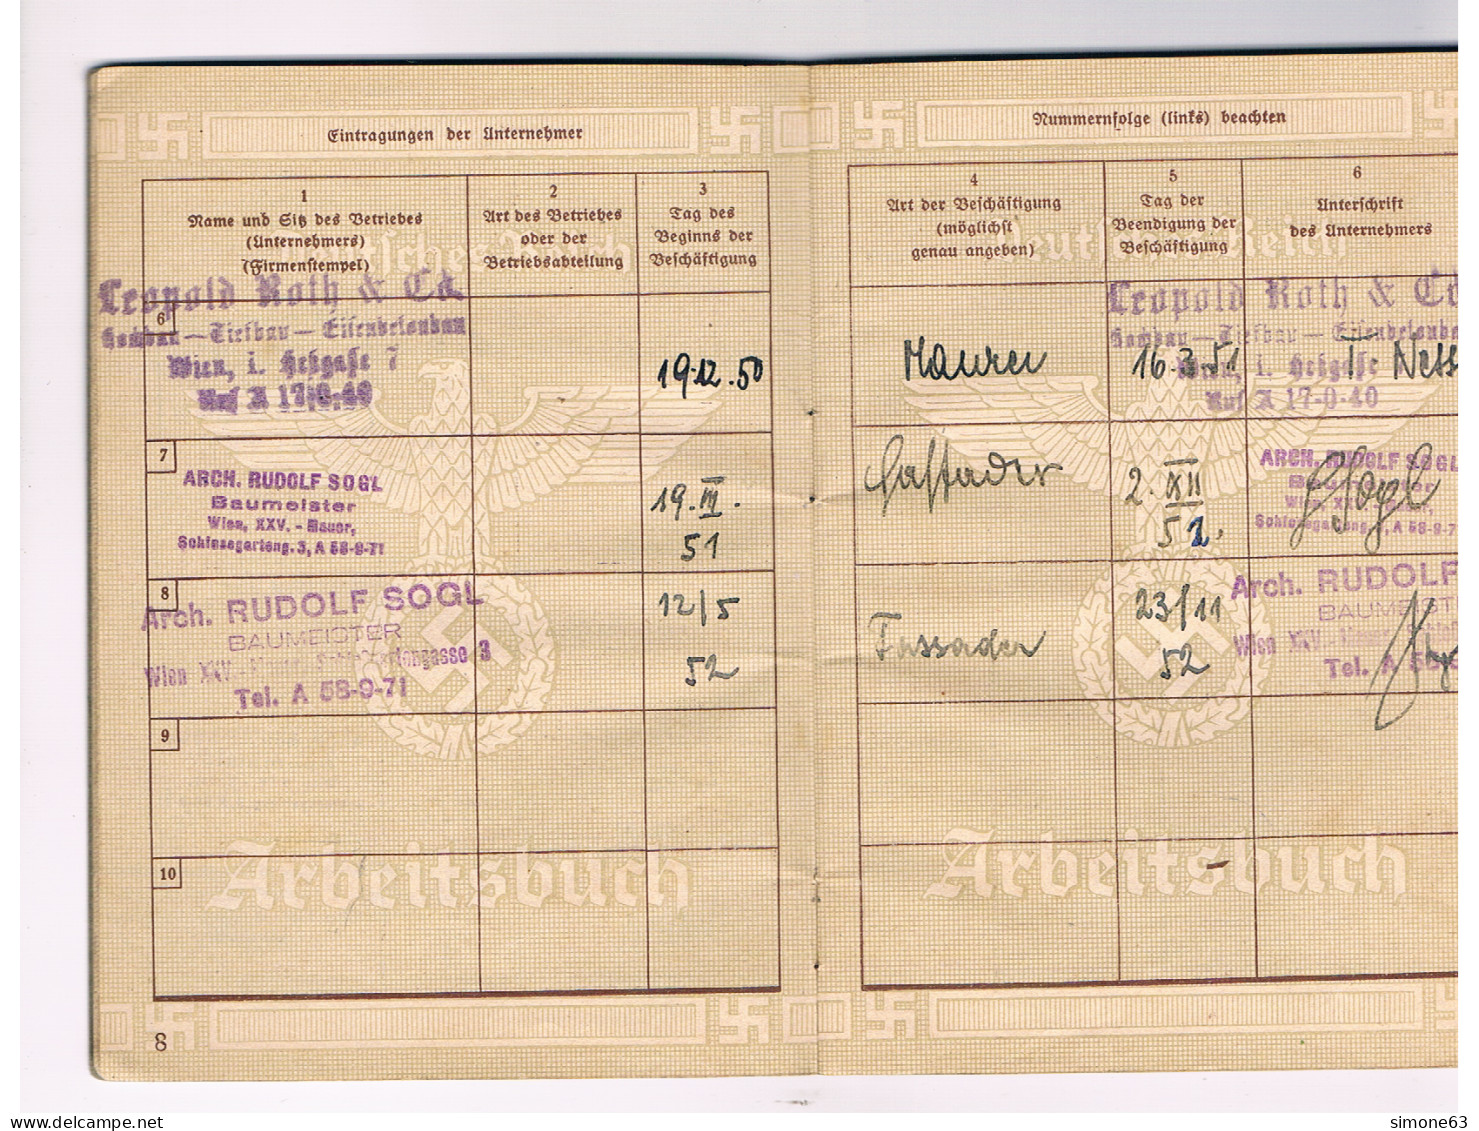 Eintragungen der Unternehmer
1
Name und Sitz des Betriebes
(Unternehmers)
(Firmenstempel)
2
Art des Betriebes
oder der
Betriebsabteilung
3
Tag des
Beginns der
Beschäftigung
6
Leopold Roth & Co.
Hochbau — Tiefbau — Eisenbetonbau
Wien, i. Heßgasse 7
Ruf A 17-0-40
19.12.50
7
ARCH. RUDOLF SOGL
Baumeister
Wien, XXV. - Mauer,
Schlossgarteng. 3, A 58-9-71
19. III.
51
8
Arch. RUDOLF SOGL
BAUMEISTER
Wien XXV.
3
Tel. A 58-9-71
12/5
52
9
10
Deutsches Reich
Arbeitsbuch
8
Nummernfolge (links) beachten
4
Art der Beschäftigung
(möglichst
genau angeben)
5
Tag der
Beendigung der
Beschäftigung
6
Unterschrift
des Unternehmers
Maurer
16.3.51
Leopold Roth & Co
Hochbau — Tiefbau — Eisenbetonba
Wien, i. Heßgasse
Ruf A 17-0-40
Fassader
2. XII
52.
ARCH. RUDOLF SOGL
Sogl
Fassader
23/11
52
Arch. RUDOLF
BAUMEIST
Tel. A 58-9
Deutsches Reich
Arbeitsbuch
delcampe.net
simone63